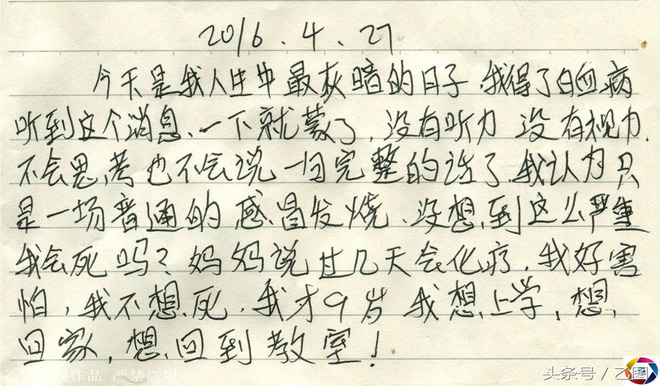 2016.4.27
今天是我人生中最灰暗的日子.我得了白血病
听到这个消息、一下就蒙了,没有听力 没有视力.
不会思考也不会说一句完整的话了.我认为只
是一场普通的感冒发烧、没想到这么严重
我会死吗?妈妈说过几天会化疗,我好害
怕,我不想死,我才9岁 我想上学,想
回家,想回到教室!
作品 严禁盗图
头条号/乙图